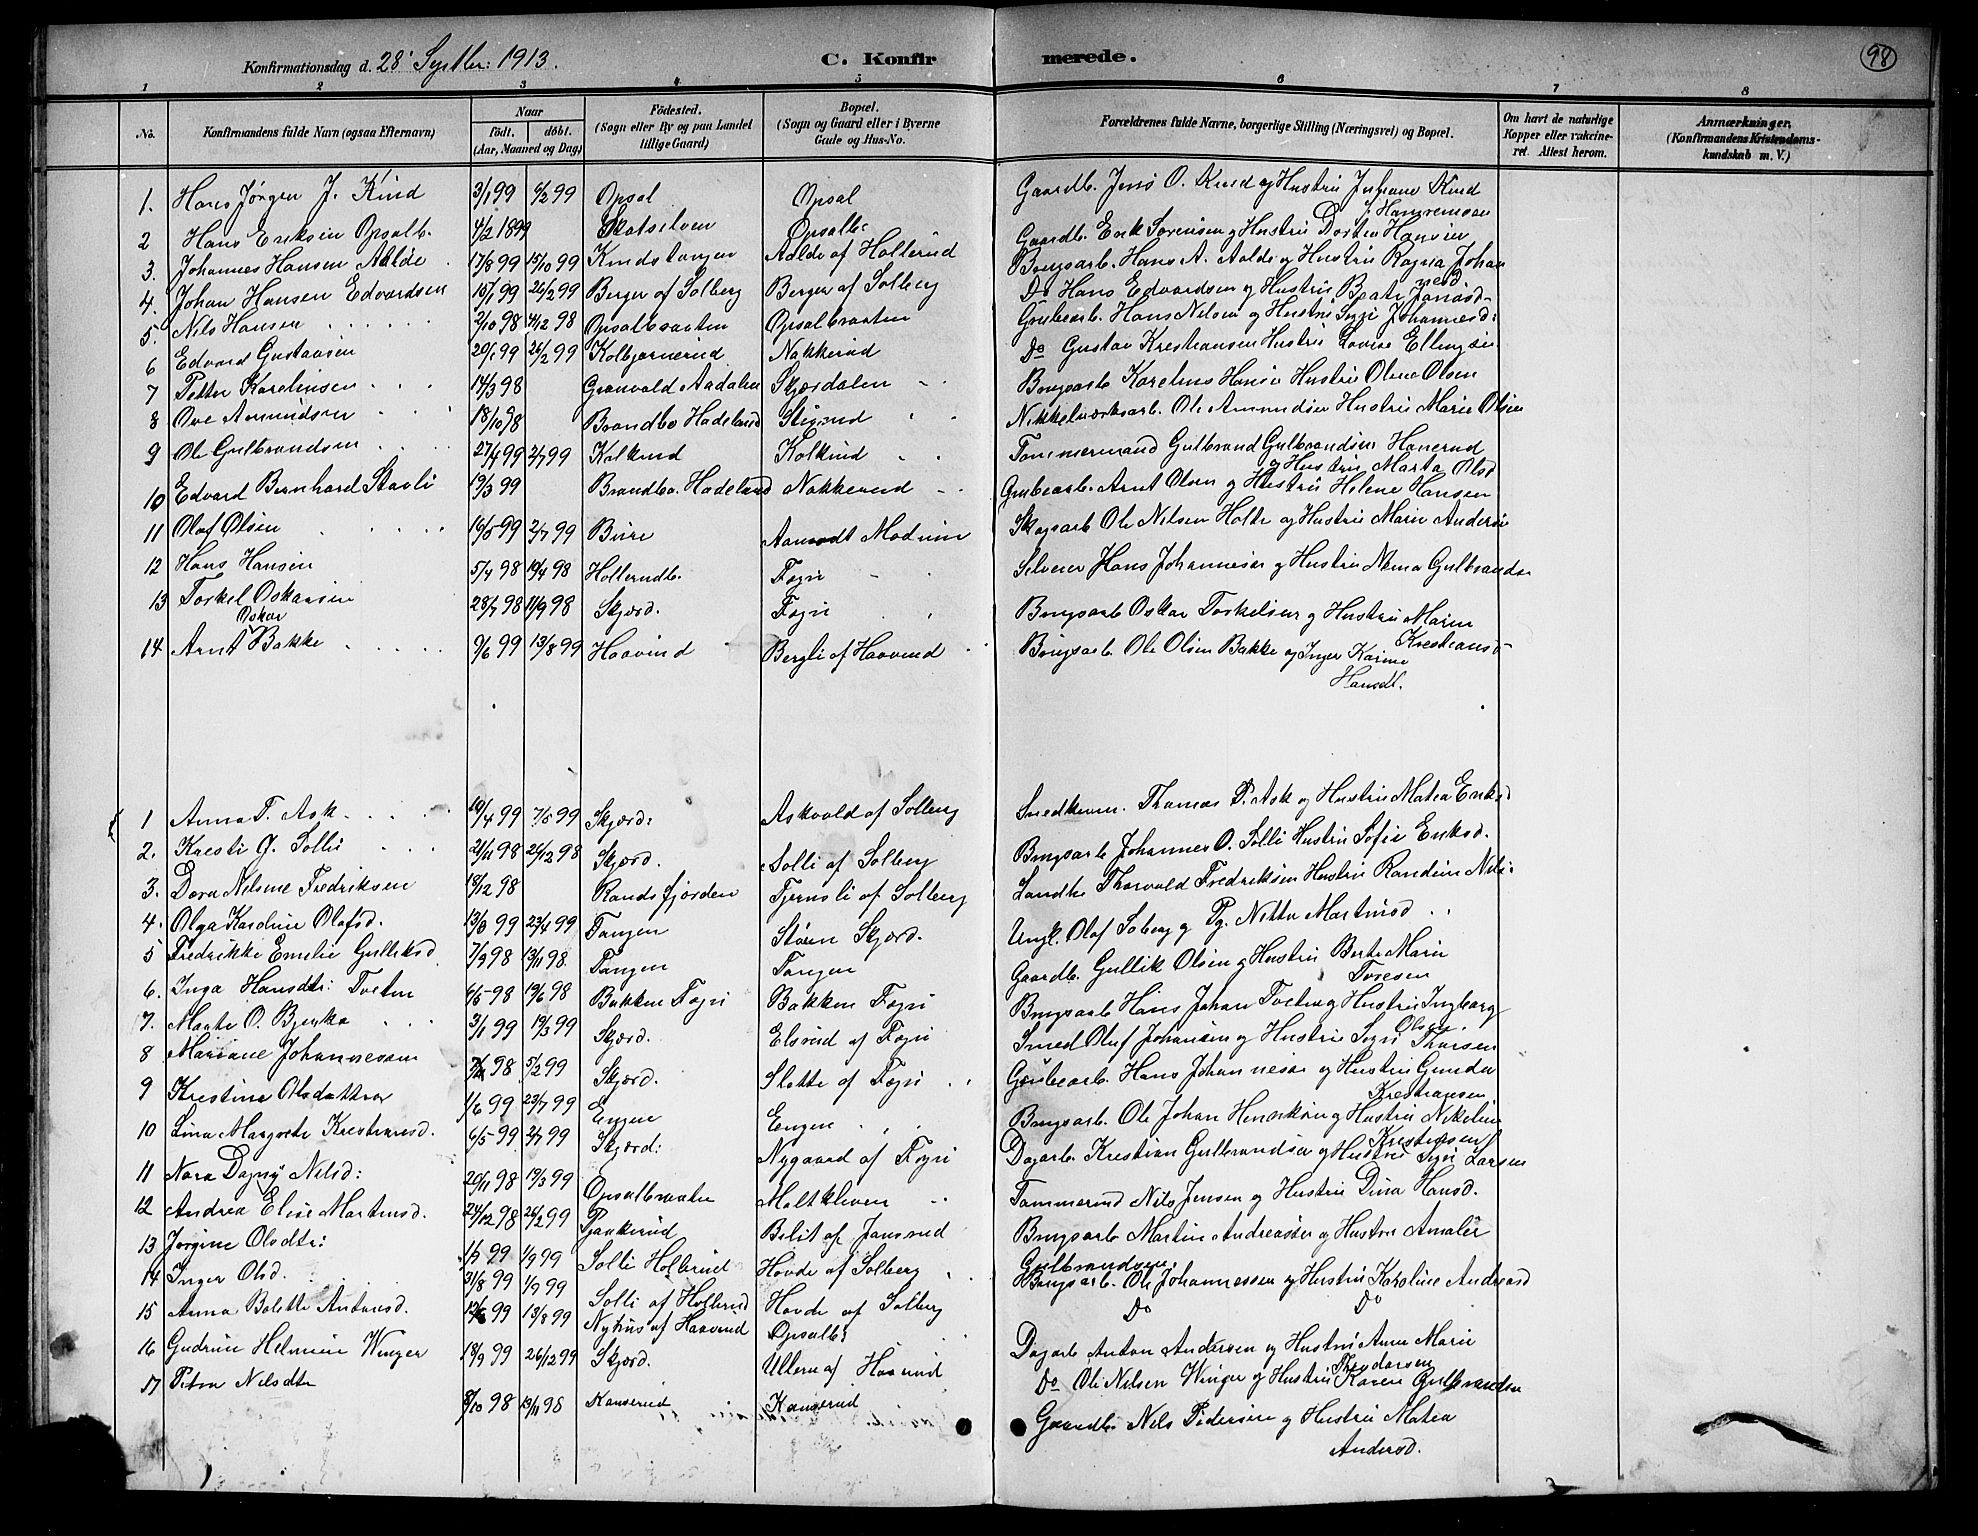 Konfirmationsdag d. 28 Septbr: 1913. C. Konfirmerede. 98
1 2 3 4 5 6 7 8
No. Konfirmandens fulde Navn (ogsaa Efternavn) Naar födt. döbt. (Aar, Maaned og Dag) Födested. (Sogn eller By og paa Landet tillige Gaard) Bopæl. (Sogn og Gaard eller i Byerne Gade og Hus-No. Forældrenes fulde Navne, borgerlige Stilling (Næringsvei) og Bopæl. Om havt de naturlige Kopper eller vakcineret. Attest herom. Anmærkninger. (Konfirmandens Kristendomskundskab m. V.)
1. Hans Jørgen J. Kind 3/1 99 6/2 99 Opsal Opsal Gaardb. Jens O. Kind og Hustru Juliane Kind
2 Hans Eriksen Opsalb. 4/2 1899 Skotselven Opsalb: Gaardb. Erik Sørensen og Hustru Dortea Hansen
3. Johannes Hansen Aalde 17/8 99 15/10 99 Kindstangen Aalde af Hollerud Brugsarb. Hans A. Aalde og Hustru Ragna Johannesd
4. Johan Hansen Edvardsen 15/1 99 26/2 99 Berger af Solberg Berger af Solberg Do Hans Edvardsen og Hustru Beate Jonasd
5. Nils Hansen 2/10 98 4/12 98 Opsalbraaten Opsalbraaten Grubearb. Hans Nilsen og Hustru Siggi Johannesd:
6 Edvard Gustavsen 20/1 99 26/2 99 Kolbjørnerud Nakkerud Do Gustav Krestiansen Hustru Lovise Ellingsen
7 Petter Karelinsen 14/3 98 Granvold Aadalen Skjærdalen Brugsarb Karelius Hansen Hustru Oline Olsen
8 Ove Amundsen 18/10 98 Brandbo Hadeland Stigrud Nikkelværksarb. Ole Amundsen Hustru Marie Olsen
9 Ole Gulbrandsen 27/4 99 2/7 99 Kolkind Kolkind Tømmermand Gulbrand Gulbrandsen Hanerud og Hustru Marta Olsd
10 Edvard Bernhard Stavli 19/3 99 Brandbo. Hadeland Nakkerud Grubearb. Arnt Olsen og Hustru Helene Hansen
11 Olaf Olsen 16/5 99 2/7 99 Bure Aamodt Modum Skogsarb Ole Nilsen Holte og Hustru Marie Andersen
12 Hans Hansen 5/4 98 19/4 98 Hollerudb. Fægri Selveier Hans Johannesen og Hustru Nema Gulbrands
13 Torkel Oskarsen 28/7 98 11/9 98 Skjærd. Fægri Brugsarb Oskar Torkelsen og Hustru Maren Krestiansd
14 Arnt Oskar Bakke 9/6 99 13/8 99 Haavind Bergli af Haavind Brugsarb. Ole Olsen Bakke og Inger Karine Hansdt.
1 Anna T. Ask 19/4 99 7/5 99 Skjærd: Askvold af Solberg Snedkerm. Thomas P. Ask og Hustru Matea Eriksd
2. Kresti G. Solli 21/11 98 26/12 98 Skjærd. Solli af Solberg Brugsarb Johannes O. Solli Hustru Sofie Eriksd.
3. Dora Nelsine Fredriksen 18/12 98 Randsfjorden Tjernsli af Solberg Landh. Thorvald Fredriksen Hustru Randine Nils
4. Olga Karoline Olafsd. 13/3 99 23/4 99 Tangen Støen Skjærd. Ungk. Olaf Soberg og Pg. Nitta Martinsd
5 Fredrikke Emelie Gulliksd 7/9 98 13/11 98 Tangen Tangen Gaardb. Gullik Olsen og Hustru Berte Marie Toresen
6. Inga Hansdtr: Tveten 6/5 98 19/6 98 Bakken Fægri Bakken Fægri Brugsarb Hans Johan Tveten og Hustru Ingborg Olsen
7. Marte O. Bjerke 3/1 99 19/3 99 Skjærd. Elsrud af Fægri Smed Oluf Johansen og Hustru Siggi Thorsen
8 Mariane Johannessen 98 5/2 99 Skjærd. Slette af Fægri Grubearb. Hans Johannesen og Hustru Gunda Krestiansen
9 Krestine Olsdatter 1/6 99 23/7 99 Engen Engen Brugsarb. Ole Johan Henriksen og Hustru Nikeline Krestiansen
10 Lina Margrete Krestiansd. 6/5 99 2/7 99 Skjærd: Nygaard af Fægri Dagarb. Krestian Gulbrandsen og Hustru Siggi Larsen
11 Nora Dagny Nilsd: 20/11 98 19/3 99 Opsalbraaten Moltkleven Tømmermd Nils Jensen og Hustru Dina Hansd.
12 Andrea Elise Martinsd. 24/12 98 26/2 99 Pjaakerud Belit af Jansrud Brugsarb Martin Andreassen og Hustru Amalie Gulbrandsen
13 Jørgine Olsdtr: 99 1/9 99 Solli Hollerud Hovde af Solberg Brugsarb. Ole Johannessen og Hustru Karoline Andersd
14 Inger Olsd. 31/8 99 1/9 99 Solli af Hollerud Hovde af Solberg Do Do
15 Anna Bolette Antonsd. 12/6 99 13/8 99 Nyhus af Haavind Opsalb: Dagarb Anton Andersen og Hustru Anne Marie Theodorsen
16 Gudrun Helmine Winger 18/9 99 26/12 99 Skjærd. Ullern af Haavind Do Ole Nilsen Winger og Hustru Karen Gulbrandsen
17 Petra Nilsdtr 8/10 98 13/11 98 Kanserud Kanserud Gaardb. Nils Pedersen og Hustru Matea Andersd.